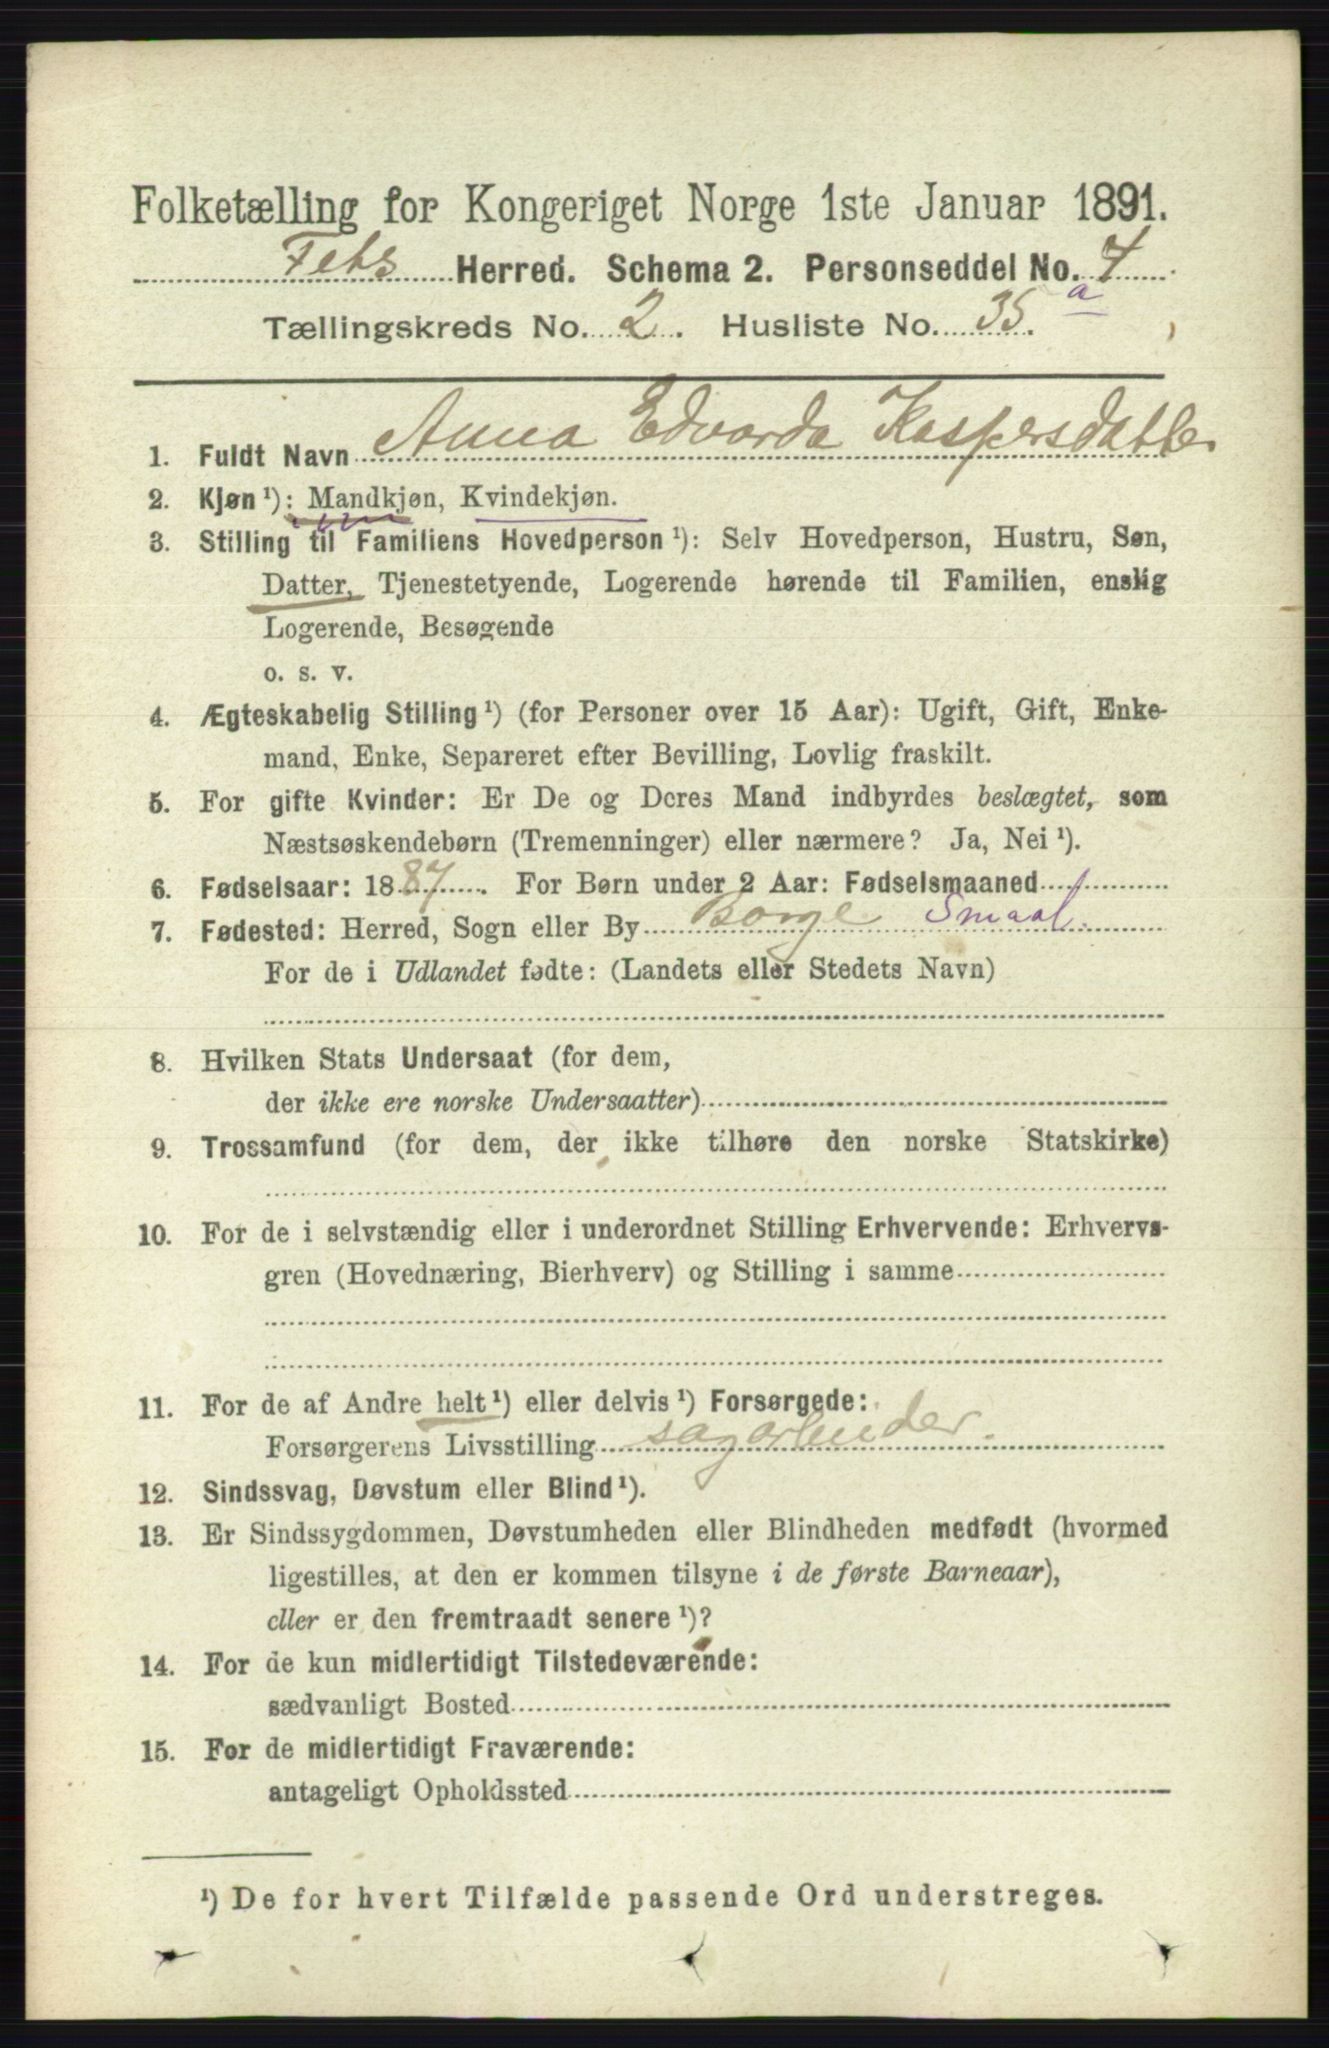 Folketælling for Kongeriget Norge 1ste Januar 1891.
Fets Herred. Schema 2. Personseddel No. 4
Tællingskreds No. 2. Husliste No. 35. a
1. Fuldt Navn Anna Edvarda Kaspersdatter
2. Kjøn ¹): Mandkjøn, Kvindekjøn.
3. Stilling til Familiens Hovedperson ¹): Selv Hovedperson, Hustru, Søn,
Datter, Tjenestetyende, Logerende hørende til Familien, enslig
Logerende, Besøgende
o. s. v.
4. Ægteskabelig Stilling ¹) (for Personer over 15 Aar): Ugift, Gift, Enke-
mand, Enke, Separeret efter Bevilling, Lovlig fraskilt.
5. For gifte Kvinder: Er De og Deres Mand indbyrdes beslægtet, som
Næstsøskendebørn (Tremenninger) eller nærmere? Ja, Nei ¹).
6. Fødselsaar: 1887. For Børn under 2 Aar: Fødselsmaaned
7. Fødested: Herred, Sogn eller By Borge Smaal.
For de i Udlandet fødte: (Landets eller Stedets Navn)
8. Hvilken Stats Undersaat (for dem,
der ikke ere norske Undersaatter)
9. Trossamfund (for dem, der ikke tilhøre den norske Statskirke)
10. For de i selvstændig eller i underordnet Stilling Erhvervende: Erhvervs-
gren (Hovednæring, Bierhverv) og Stilling i samme
11. For de af Andre helt ¹) eller delvis ¹) Forsørgede:
Forsørgerens Livsstilling sagarbeider.
12. Sindssvag, Døvstum eller Blind ¹).
13. Er Sindssygdommen, Døvstumheden eller Blindheden medfødt (hvormed
ligestilles, at den er kommen tilsyne i de første Barneaar),
eller er den fremtraadt senere ¹)?
14. For de kun midlertidigt Tilstedeværende:
sædvanligt Bosted
15. For de midlertidigt Fraværende:
antageligt Opholdssted
¹) De for hvert Tilfælde passende Ord understreges.